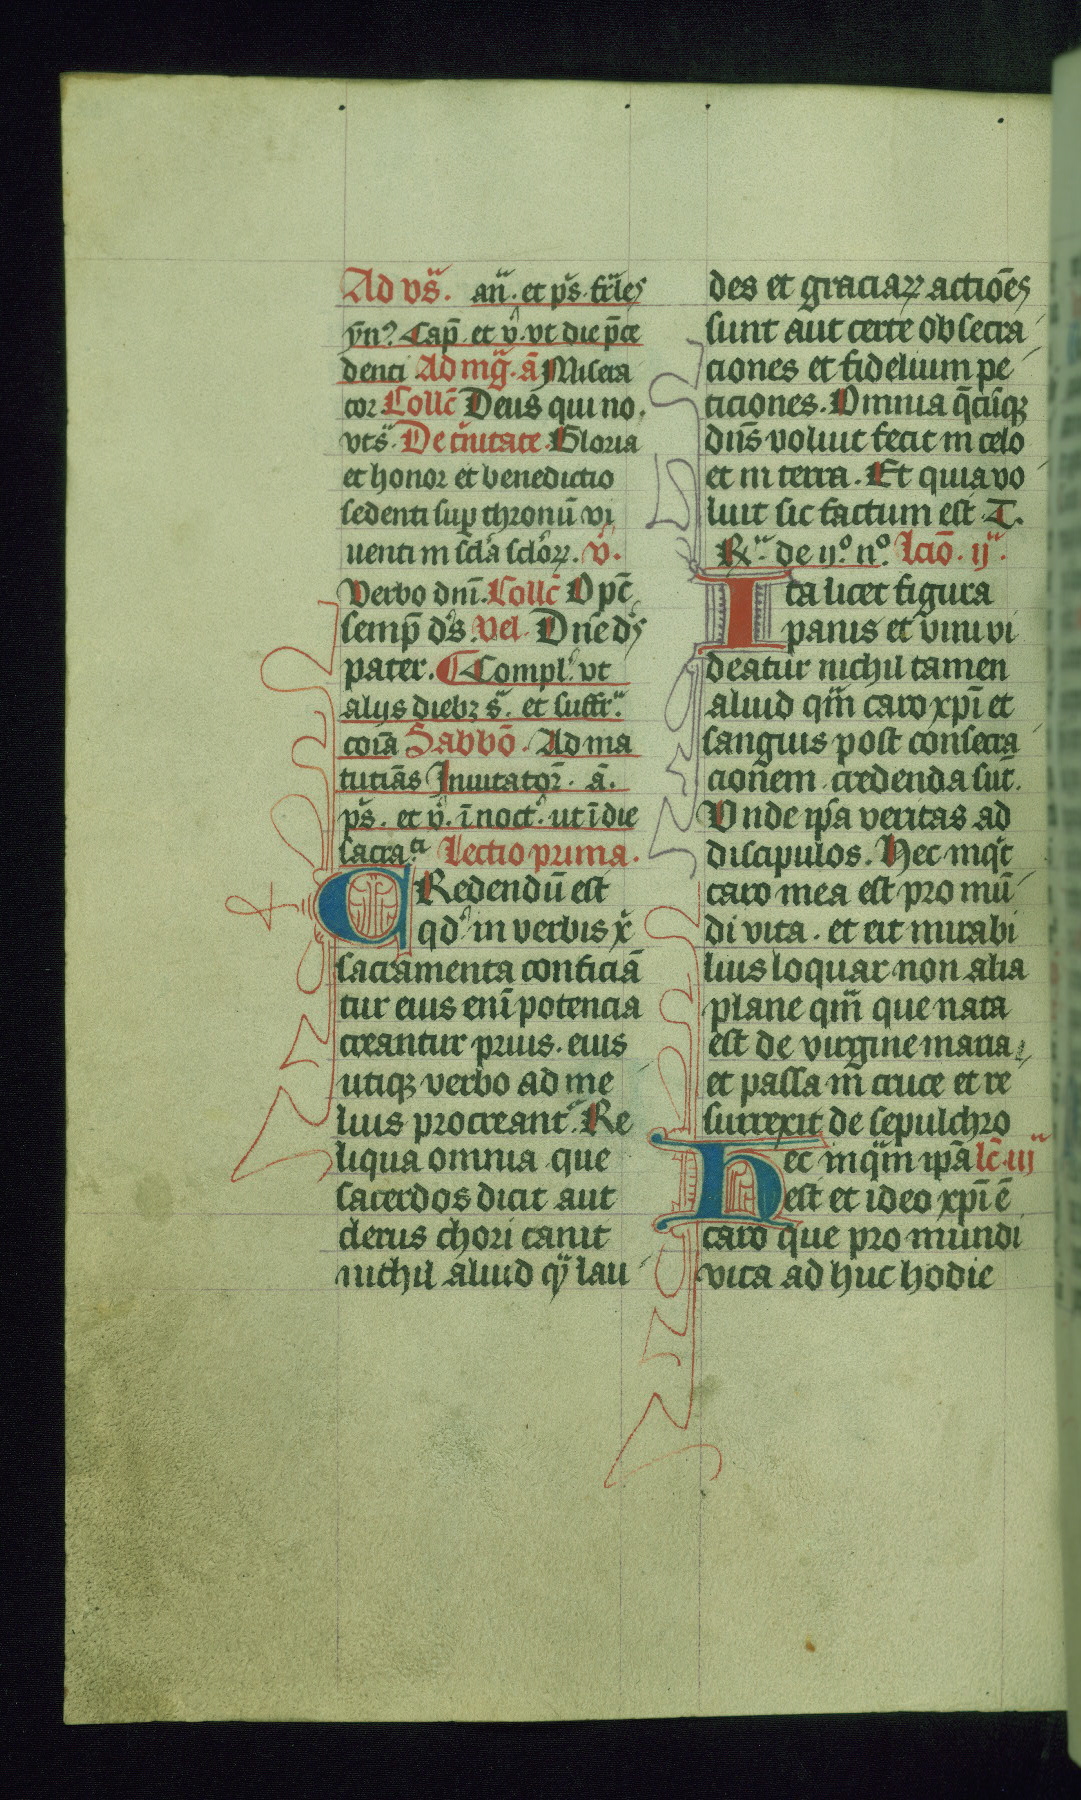 Ad vs̄. an̄. et ps̄. fr̄les
ẏn᷒ Cap̄. et v̊. vt die p̄ce
denti Ad mḡ. ā Misera
cor Collc̄ Deus qui no
vts̄. De t͛nitate Gloria
et honor et benedictio
sedenti sup̄ thronū vi
uenti in scl̄a scl̄oꝝ. v̊.
Verbo dnī. Collc̄ O pc̄
semp̄ ds̄. Vel Dne ds̄
pater. Compl. vt
alijs diebꝫ s̄. et suffr̄.
coīa Sabbō. Ad ma
tutiās Inuitator̄. ā.
ps̄. et v̊. ī noct̄. ut ī die
sacra.ti Lectio prima.
CRedendū est
qd̄ in verbis x̄
sacramenta conficiā
tur eius enī potencia
creantur prius. eius
utiqꝫ verbo ad me
lius procreant᷒. Re
liqua omnia que
sacerdos dicit aut
clerus chori canit
nichil aliud qͣ̄ lau
des et graciaꝝ actiōes
sunt aut certe obsecra
ciones et fidelium pe
ticiones. Omnia q̄cūqꝫ
dūs voluit fecit in celo
et in terra. Et quia vo
luit sic factum est. T.
℟. de ijº. nº. lciō. ijᵃ.
Ita licet figura
panis et vini vi
deatur nichil tamen
aliud qm̄ caro xpī et
sanguis post consecra
cionem. credenda sūt.
Vnde ipa veritas ad
discipulos. Hec inq͛t
caro mea est pro mū
di vita. et eit mirabi
lius loquar non alia
plane qm̄ que nata
est de virgine maria
et passa in cruce et re
surrexit de sepulchro
Hec inqͣm ipā lc̄. iijᵃ
est et ideo xpī ē
caro que pro mundi
vita ad huc hodie